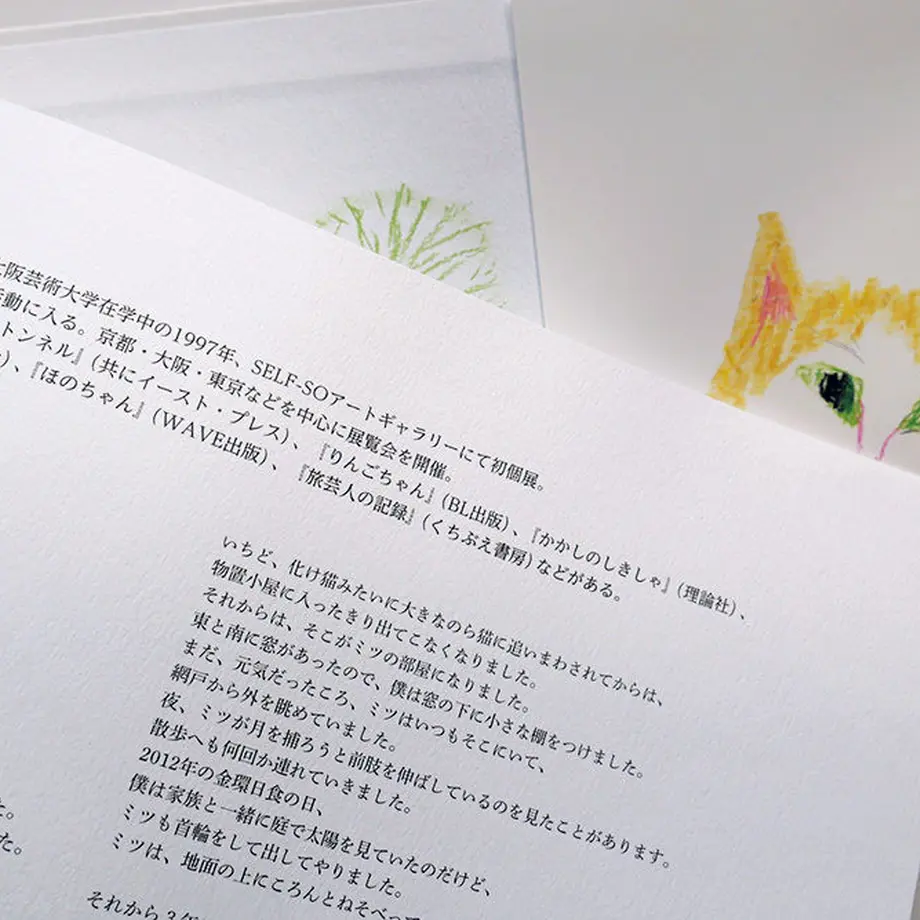 大阪芸術大学在学中の1997年、SELF-SOアートギャラリーにて初個展。
動に入る。京都・大阪・東京などを中心に展覧会を開催。
トンネル』(共にイースト・プレス)、『りんごちゃん』(BL出版)、『かかしのしきしゃ』(理論社)、
)、『ほのちゃん』(WAVE出版)、『旅芸人の記録』(くちぶえ書房)などがある。
いちど、化け猫みたいに大きなのら猫に追いまわされてからは、
物置小屋に入ったきり出てこなくなりました。
それからは、そこがミツの部屋になりました。
東と南に窓があったので、僕は窓の下に小さな棚をつけました。
まだ、元気だったころ、ミツはいつもそこにいて、
網戸から外を眺めていました。
夜、ミツが月を捕ろうと前肢を伸ばしているのを見たことがあります。
散歩へも何回か連れていきました。
2012年の金環日食の日、
僕は家族と一緒に庭で太陽を見ていたのだけど、
ミツも首輪をして出してやりました。
ミツは、地面の上にころんとねそべって
それから3年
た。
た。